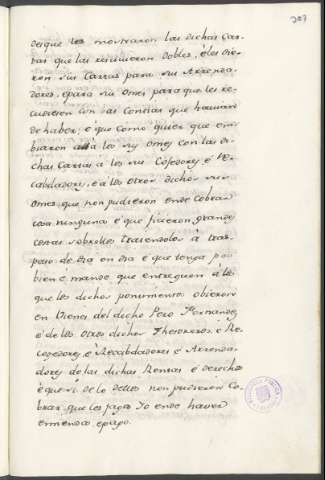 desque les mostraron las dichas Car
tas que las recivieron dobles, é les die
ron sus Cartas para su Arrenda
dores, é para su omes para que les re
cudieren con las Contias que havian
de haber; é que como quier que em
biaron allá los sus omes con las di
chas Cartas á los sus Cojedores, é Re
cabdadores, é á los otros dichos sus
omes que non pudieron ende cobrar
cosa ninguna é que ficieron grandes
costas sobrello trayendolos á tras
paso de dia en dia é que tenga por
bien é mande que entreguen á los
que los dichos
en Vienes del dicho Pero Fernandez
é de los otros dichos Thesoreros é Re
cojedores, é Recabdadores é Arrenda
dores de las dichas Rentas é derechos
é que si de lo dellos non pudieren Co
brar, que les faga Yo ende haver
enmienda é pago.